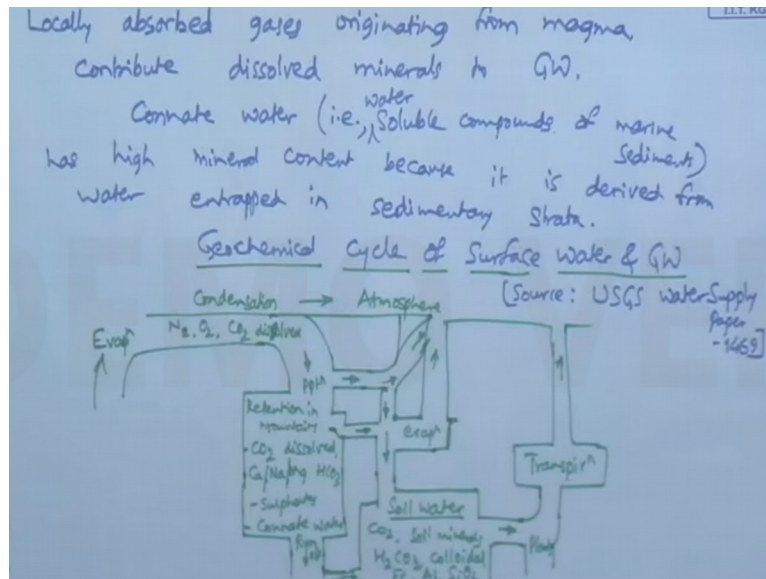 I.I.T. KG
Locally absorbed gases originating from magma,
contribute dissolved minerals to GW.
Connate water (i.e., water soluble compounds of marine sediments)
has high mineral content because it is derived from
water entrapped in sedimentary strata.
Geochemical cycle of Surface water & GW
[Source: USGS Water Supply
Paper
-1469]
Condensation → Atmosphere
N2, O2, CO2 dissolves
Evapn
pptn
Retention in
mountains
- CO2 dissolved,
Ca/Na/Mg HCO3
- Sulphates
- Connate water
evapn
Transpirn
Soil Water
CO2, Soil minerals
H2CO3, Colloidal
Fe, Al, SiO2
Plants